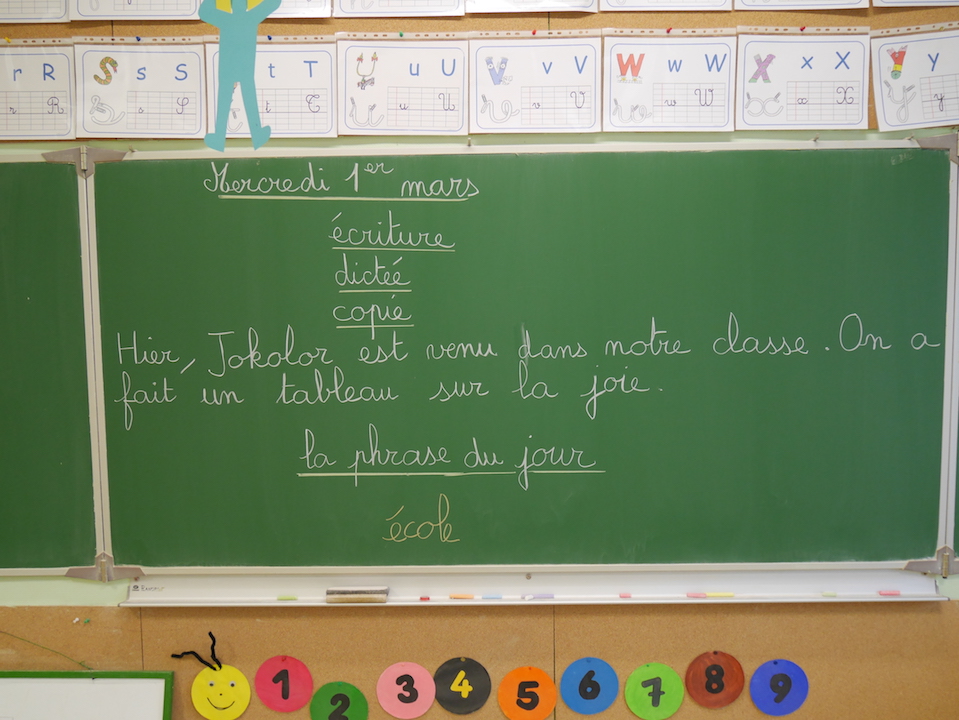 r R r R
s S s S
t T t T
u U u U
v V v V
w W w W
x X x X
y y
Mercredi 1er mars
écriture
dictéé
copié
Hier, Jokolor est venu dans notre classe. On a
fait un tableau sur la joie.
la phrase du jour
école
1 2 3 4 5 6 7 8 9